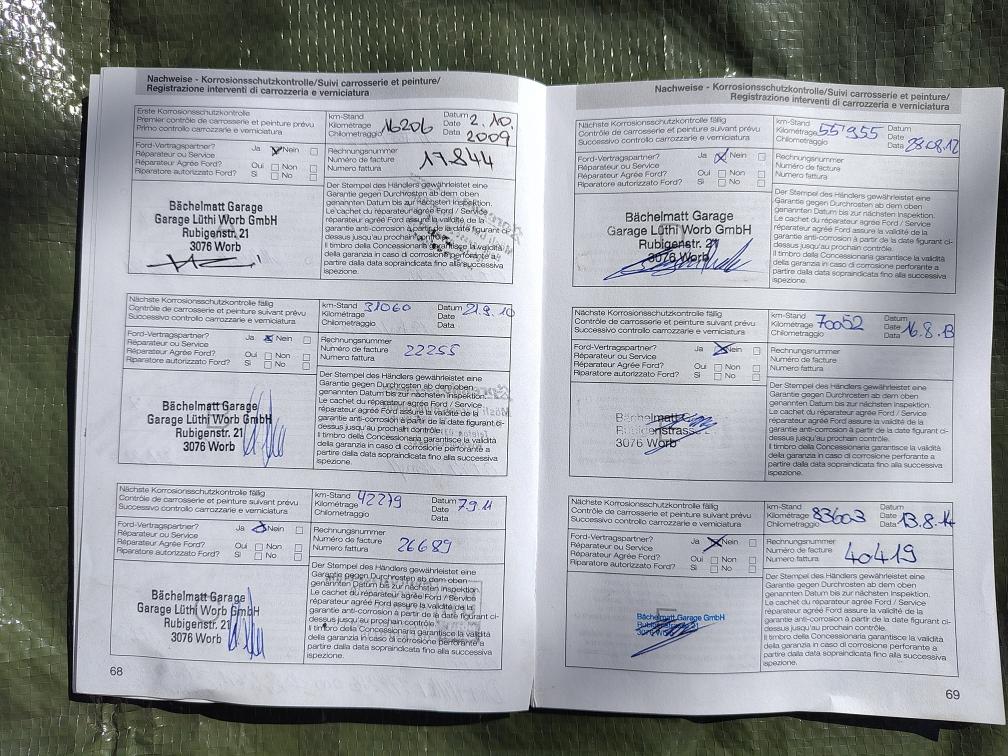 Nachweise - Korrosionsschutzkontrolle/Suivi carrosserie et peinture/
Registrazione interventi di carrozzeria e verniciatura
Erste Korrosionsschutzkontrolle
Premier contrôle de carrosserie et peinture prévu
Primo controllo carrozzerie e verniciatura
km-Stand
Kilométrage
Chilometraggio
16206
Datum
Date
Data
2.10.
2009
Ford-Vertragspartner?
Réparateur ou Service
Réparateur Agrée Ford?
Riparatore autorizzato Ford?
Ja Nein
Oui Non
Si No
Rechnungsnummer
Numéro de facture
Numero fattura
17844
Bächelmatt Garage
Garage Lüthi Worb GmbH
Rubigenstr. 21
3076 Worb
Der Stempel des Händlers gewährleistet eine
Garantie gegen Durchrosten ab dem oben
genannten Datum bis zur nächsten Inspektion.
Le cachet du réparateur agrée Ford / Service
réparateur agréé Ford assure la validité de la
garantie anti-corrosion à partir de la date figurant ci-
dessus jusqu'au prochain contrôle.
Il timbro della Concessionaria garantisce la validità
della garanzia in caso di corrosione perforante a
partire dalla data sopraindicata fino alla successiva
ispezione.
Nächste Korrosionsschutzkontrolle fällig
Contrôle de carrosserie et peinture suivant prévu
Successivo controllo carrozzarie e verniciatura
km-Stand
Kilométrage
Chilometraggio
31060
Datum
Date
Data
21.9.10
Ford-Vertragspartner?
Réparateur ou Service
Réparateur Agrée Ford?
Riparatore autorizzato Ford?
Ja Nein
Oui Non
Si No
Rechnungsnummer
Numéro de facture
Numero fattura
22255
Bächelmatt Garage
Garage Lüthi Worb GmbH
Rubigenstr. 21
3076 Worb
Der Stempel des Händlers gewährleistet eine
Garantie gegen Durchrosten ab dem oben
genannten Datum bis zur nächsten Inspektion.
Le cachet du réparateur agrée Ford / Service
réparateur agréé Ford assure la validité de la
garantie anti-corrosion à partir de la date figurant ci-
dessus jusqu'au prochain contrôle.
Il timbro della Concessionaria garantisce la validità
della garanzia in caso di corrosione perforante a
partire dalla data sopraindicata fino alla successiva
ispezione.
Nächste Korrosionsschutzkontrolle fällig
Contrôle de carrosserie et peinture suivant prévu
Successivo controllo carrozzarie e verniciatura
km-Stand
Kilométrage
Chilometraggio
42279
Datum
Date
Data
7.9.11
Ford-Vertragspartner?
Réparateur ou Service
Réparateur Agrée Ford?
Riparatore autorizzato Ford?
Ja Nein
Oui Non
Si No
Rechnungsnummer
Numéro de facture
Numero fattura
26689
Bächelmatt Garage
Garage Lüthi Worb GmbH
Rubigenstr. 21
3076 Worb
Der Stempel des Händlers gewährleistet eine
Garantie gegen Durchrosten ab dem oben
genannten Datum bis zur nächsten Inspektion.
Le cachet du réparateur agrée Ford / Service
réparateur agréé Ford assure la validité de la
garantie anti-corrosion à partir de la date figurant ci-
dessus jusqu'au prochain contrôle.
Il timbro della Concessionaria garantisce la validità
della garanzia in caso di corrosione perforante a
partire dalla data sopraindicata fino alla successiva
ispezione.
68
Nachweise - Korrosionsschutzkontrolle/Suivi carrosserie et peinture/
Registrazione interventi di carrozzeria e verniciatura
Nächste Korrosionsschutzkontrolle fällig
Contrôle de carrosserie et peinture suivant prévu
Successivo controllo carrozzarie e verniciatura
km-Stand
Kilométrage
Chilometraggio
55'955
Datum
Date
Data
28.08.12
Ford-Vertragspartner?
Réparateur ou Service
Réparateur Agrée Ford?
Riparatore autorizzato Ford?
Ja Nein
Oui Non
Si No
Rechnungsnummer
Numéro de facture
Numero fattura
Bächelmatt Garage
Garage Lüthi Worb GmbH
Rubigenstr. 21
3076 Worb
Der Stempel des Händlers gewährleistet eine
Garantie gegen Durchrosten ab dem oben
genannten Datum bis zur nächsten Inspektion.
Le cachet du réparateur agrée Ford / Service
réparateur agréé Ford assure la validité de la
garantie anti-corrosion à partir de la date figurant ci-
dessus jusqu'au prochain contrôle.
Il timbro della Concessionaria garantisce la validità
della garanzia in caso di corrosione perforante a
partire dalla data sopraindicata fino alla successiva
ispezione.
Nächste Korrosionsschutzkontrolle fällig
Contrôle de carrosserie et peinture suivant prévu
Successivo controllo carrozzarie e verniciatura
km-Stand
Kilométrage
Chilometraggio
70052
Datum
Date
Data
16.8.13
Ford-Vertragspartner?
Réparateur ou Service
Réparateur Agrée Ford?
Riparatore autorizzato Ford?
Ja Nein
Oui Non
Si No
Rechnungsnummer
Numéro de facture
Numero fattura
Bächelmatt
Rubigenstrasse
3076 Worb
Der Stempel des Händlers gewährleistet eine
Garantie gegen Durchrosten ab dem oben
genannten Datum bis zur nächsten Inspektion.
Le cachet du réparateur agrée Ford / Service
réparateur agréé Ford assure la validité de la
garantie anti-corrosion à partir de la date figurant ci-
dessus jusqu'au prochain contrôle.
Il timbro della Concessionaria garantisce la validità
della garanzia in caso di corrosione perforante a
partire dalla data sopraindicata fino alla successiva
ispezione.
Nächste Korrosionsschutzkontrolle fällig
Contrôle de carrosserie et peinture suivant prévu
Successivo controllo carrozzarie e verniciatura
km-Stand
Kilométrage
Chilometraggio
83603
Datum
Date
Data
13.8.14
Ford-Vertragspartner?
Réparateur ou Service
Réparateur Agrée Ford?
Riparatore autorizzato Ford?
Ja Nein
Oui Non
Si No
Rechnungsnummer
Numéro de facture
Numero fattura
40419
Bächelmatt Garage GmbH
3076
Der Stempel des Händlers gewährleistet eine
Garantie gegen Durchrosten ab dem oben
genannten Datum bis zur nächsten Inspektion.
Le cachet du réparateur agrée Ford / Service
réparateur agréé Ford assure la validité de la
garantie anti-corrosion à partir de la date figurant ci-
dessus jusqu'au prochain contrôle.
Il timbro della Concessionaria garantisce la validità
della garanzia in caso di corrosione perforante a
partire dalla data sopraindicata fino alla successiva
ispezione.
69